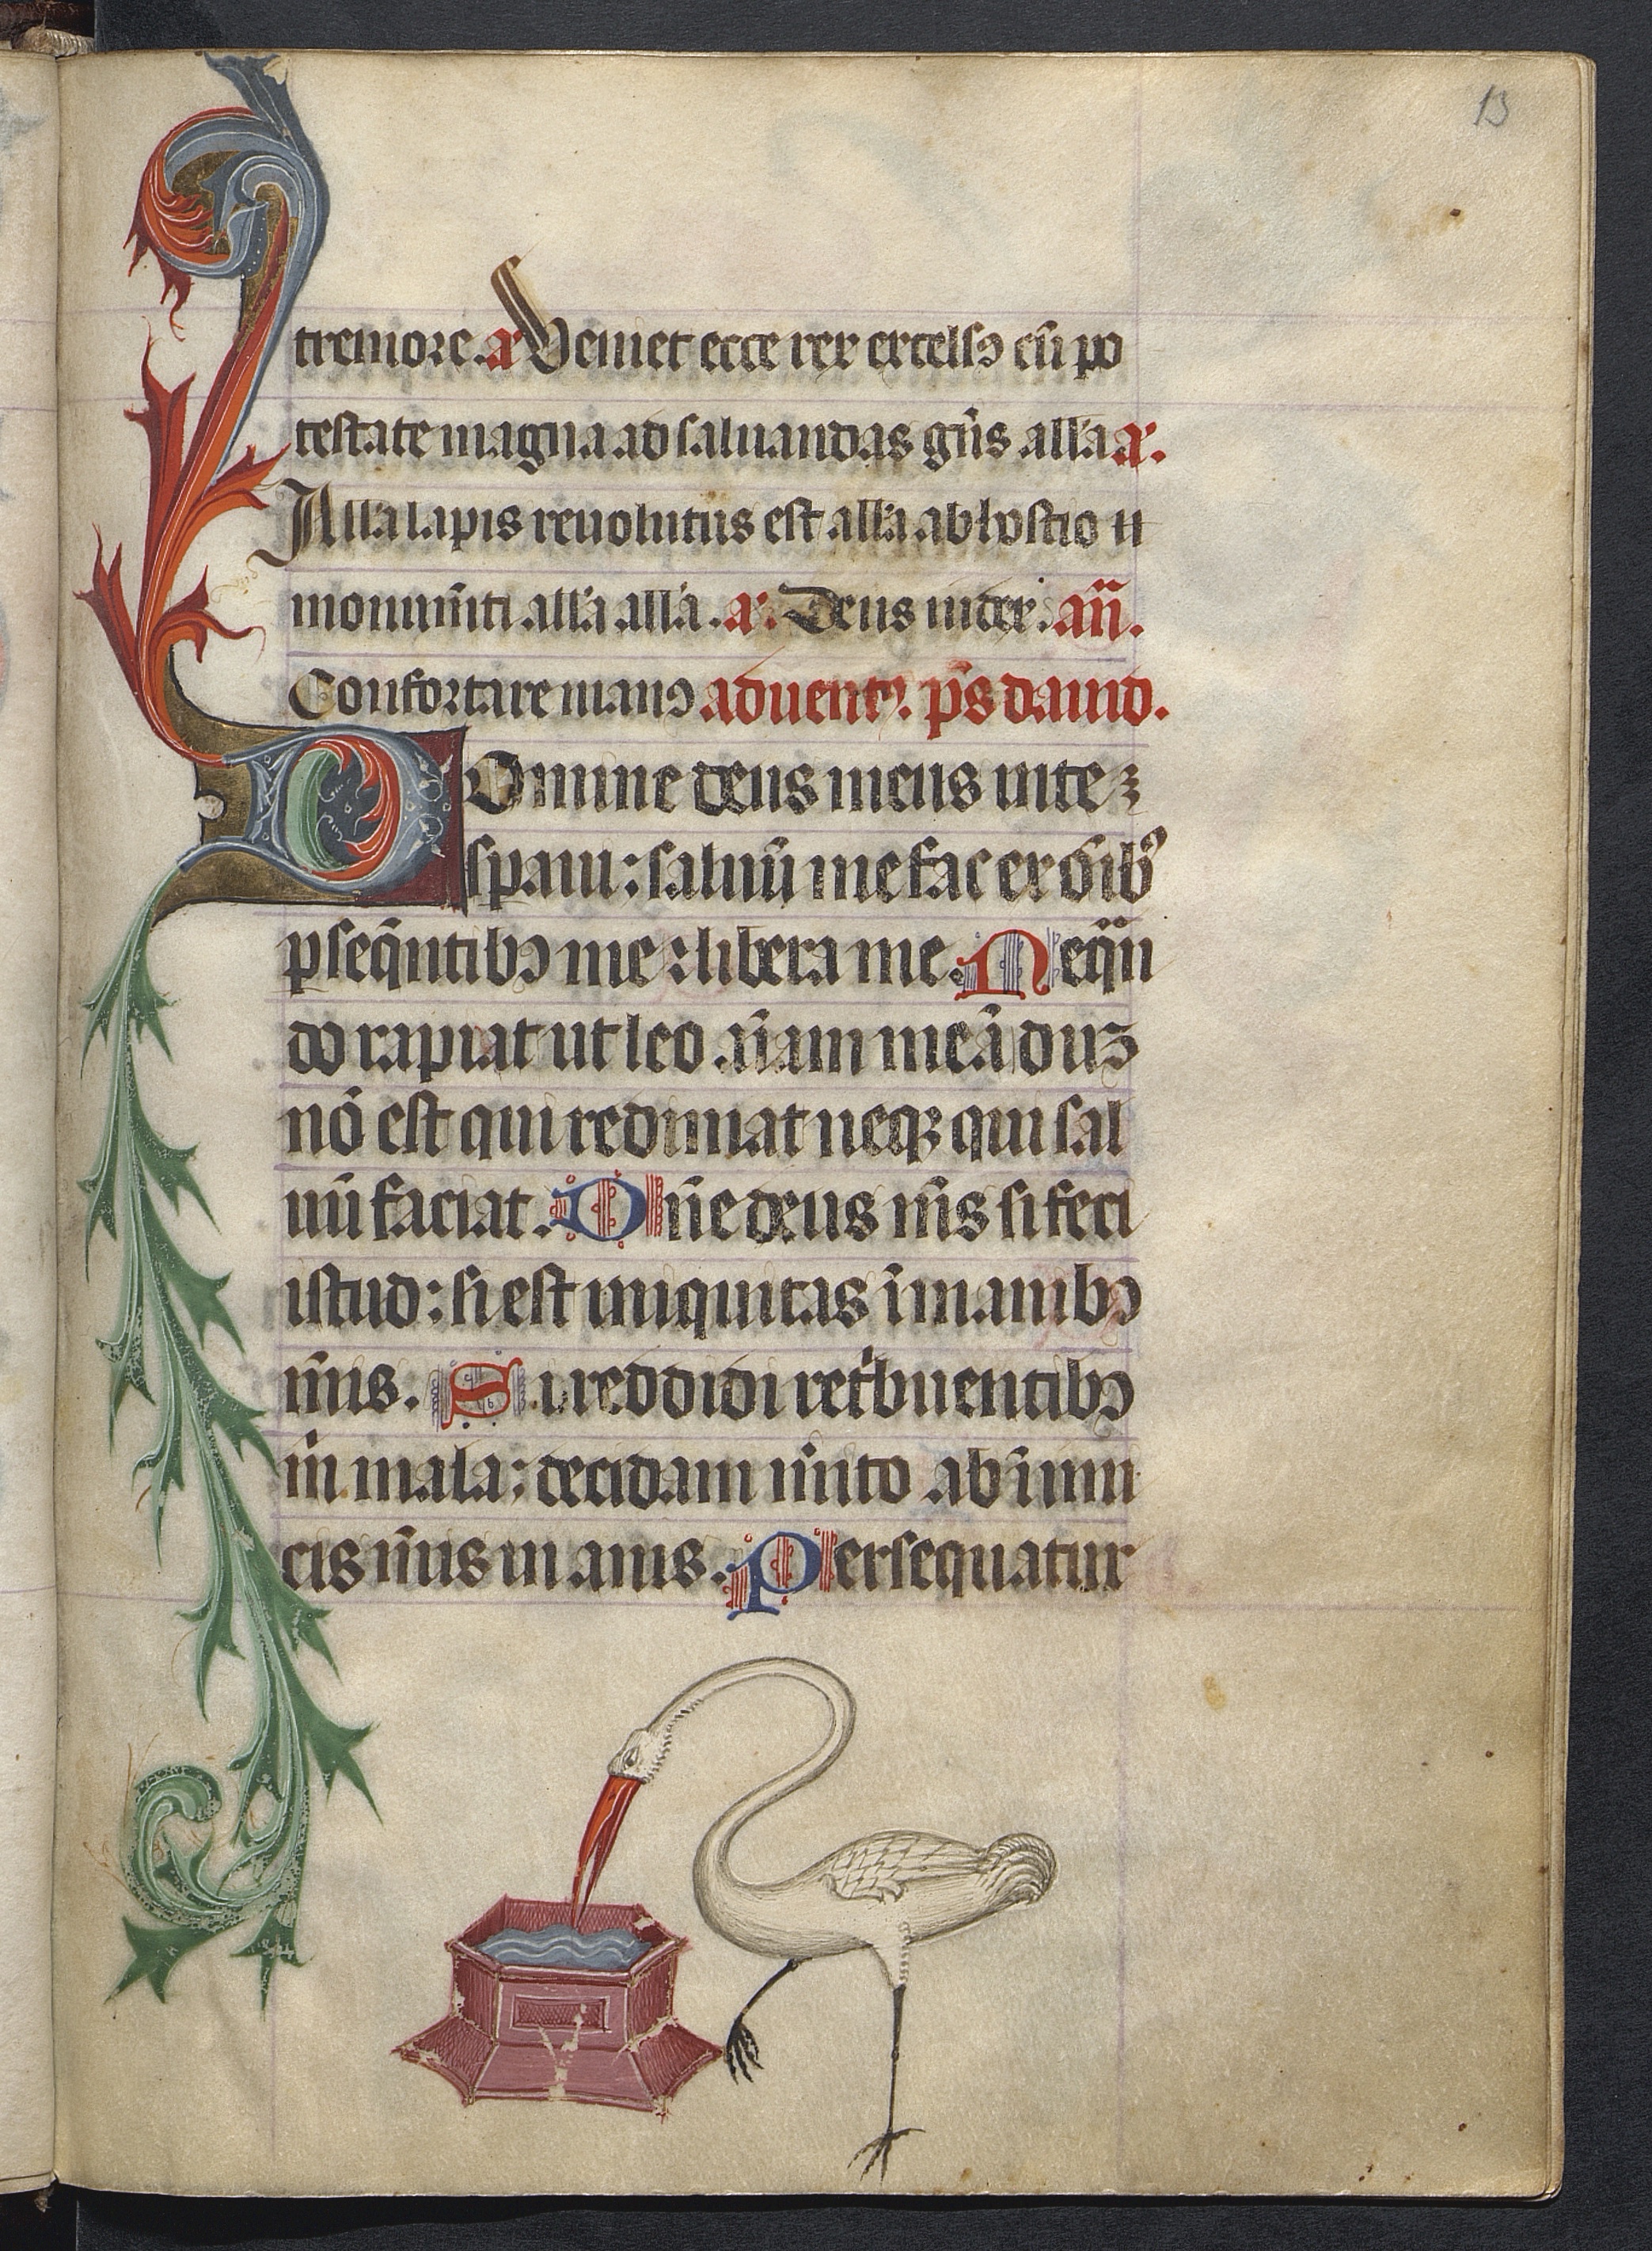 13
tremore. a᷑ Veniet ecce rex excelsꝯ cū po
testate magna ad saluandas gn̄s all'a a᷑.
All'a lapis reuolutus est all'a ab hostio
monum̄ti all'a all'a. a᷑. Deus iudex. an̄.
Confortare manꝯ aduentꝰ. p̄s dauid.
DOmine deus meus in te
speraui: saluū me fac ex om̄ibꝰ
ꝑseq̄ntibꝯ me: libera me. Neqū
do rapiat ut leo an̄am meā duꝫ
nō est qui redimat neqꝫ qui sal
uū faciat. Dn̄e deus m̄s si feci
istud: si est iniquitas ī manibꝯ
m̄is. Si reddidi ret'buentibꝯ
m' mala: decidam m'ito ab inimi
cis m̄is inanis. Persequatur